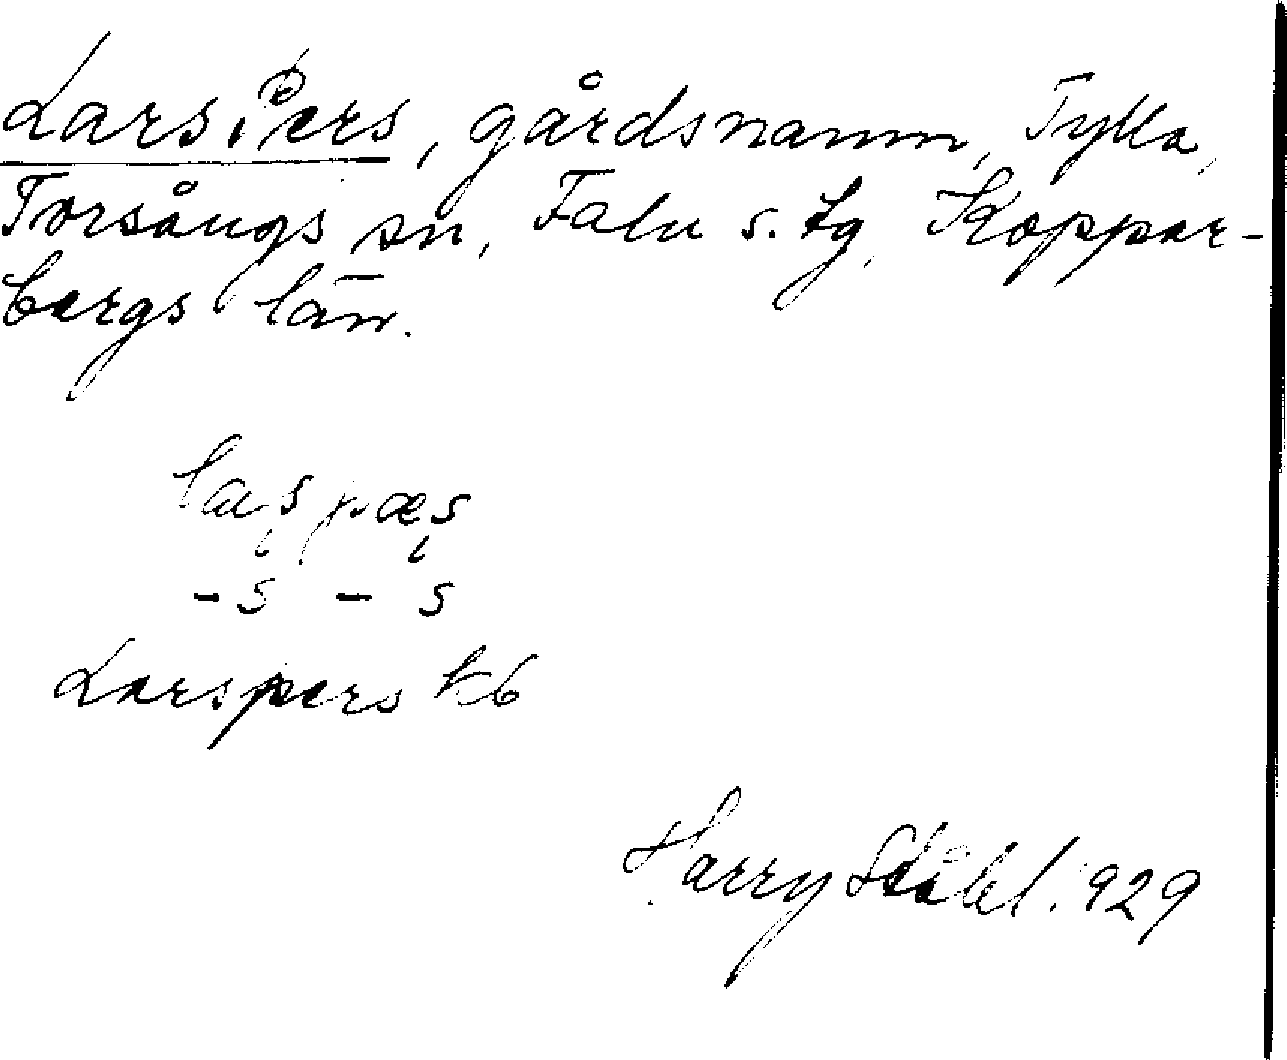 Lars Pers, gårdsnamn, Tylla,
Torsångs sn, Falu s. tg, Koppar-
bergs län.
laʂpæʂ
- s - s
Larspers kb
Harry Ståhl. 1929